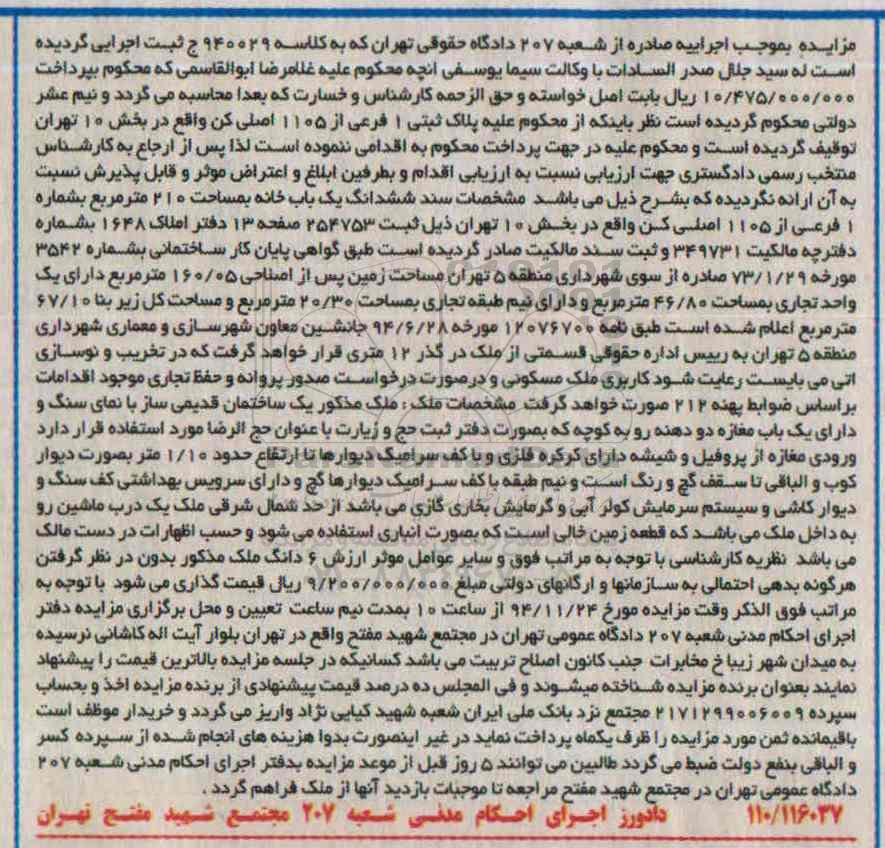 مزایده بموجب اجراییه صادره از شعبه ۲۰۷ دادگاه حقوقی تهران که به کلاسه ۹۴۰۰۲۹ ج ثبت اجرایی گردیده
است له سید جلال صدر السادات با وکالت سیما یوسفی انچه محکوم علیه غلامرضا ابوالقاسمی که محکوم بپرداخت
۱۰/۴۷۵/۰۰۰/۰۰۰ ریال بابت اصل خواسته و حق الزحمه کارشناس و خسارت که بعدا محاسبه می گردد و نیم عشر
دولتی محکوم گردیده است نظر باینکه از محکوم علیه پلاک ثبتی ۱ فرعی از ۱۱۰۵ اصلی کن واقع در بخش ۱۰ تهران
توقیف گردیده است و محکوم علیه در جهت پرداخت محکوم به اقدامی ننموده است لذا پس از ارجاع به کارشناس
منتخب رسمی دادگستری جهت ارزیابی نسبت به ارزیابی اقدام و بطرفین ابلاغ و اعتراض موثر و قابل پذیرش نسبت
به آن ارائه نگردیده که بشرح ذیل می باشد مشخصات سند ششدانگ یک باب خانه بمساحت ۲۱۰ مترمربع بشماره
۱ فرعی از ۱۱۰۵ اصلی کن واقع در بخش ۱۰ تهران ذیل ثبت ۲۵۴۷۵۳ صفحه ۱۳ دفتر املاک ۱۶۴۸ بشماره
دفترچه مالکیت ۳۴۹۷۳۱ و ثبت سند مالکیت صادر گردیده است طبق گواهی پایان کار ساختمانی بشماره ۳۵۴۲
مورخه ۷۳/۱/۲۹ صادره از سوی شهرداری منطقه ۵ تهران مساحت زمین پس از اصلاحی ۱۶۰/۰۵ مترمربع دارای یک
واحد تجاری بمساحت ۴۶/۸۰ مترمربع و دارای نیم طبقه تجاری بمساحت ۲۰/۳۰ مترمربع و مساحت کل زیر بنا ۶۷/۱۰
مترمربع اعلام شده است طبق نامه ۱۲۰۷۶۷۰۰ مورخه ۹۴/۶/۲۸ جانشین معاون شهرسازی و معماری شهرداری
منطقه ۵ تهران به رییس اداره حقوقی قسمتی از ملک در گذر ۱۲ متری قرار خواهد گرفت که در تخریب و نوسازی
اتی می بایست رعایت شود کاربری ملک مسکونی و درصورت درخواست صدور پروانه و حفظ تجاری موجود اقدامات
براساس ضوابط پهنه ۲۱۲ صورت خواهد گرفت مشخصات ملک : ملک مذکور یک ساختمان قدیمی ساز با نمای سنگ و
دارای یک باب مغازه دو دهنه رو به کوچه که بصورت دفتر ثبت حج و زیارت با عنوان حج الرضا مورد استفاده قرار دارد
ورودی مغازه از پروفیل و شیشه دارای کرکره فلزی و با کف سرامیک دیوارها تا ارتفاع حدود ۱/۱۰ متر بصورت دیوار
کوب و الباقی تا سقف گچ و رنگ است و نیم طبقه با کف سرامیک دیوارها گچ و دارای سرویس بهداشتی کف سنگ و
دیوار کاشی و سیستم سرمایش کولر آبی و گرمایش بخاری گازی می باشد از حد شمال شرقی ملک یک درب ماشین رو
به داخل ملک می باشد که قطعه زمین خالی است که بصورت انباری استفاده می شود و حسب اظهارات در دست مالک
می باشد نظریه کارشناسی با توجه به مراتب فوق و سایر عوامل موثر ارزش ۶ دانگ ملک مذکور بدون در نظر گرفتن
هرگونه بدهی احتمالی به سازمانها و ارگانهای دولتی مبلغ ۹/۲۰۰/۰۰۰/۰۰۰ ریال قیمت گذاری می شود با توجه به
مراتب فوق الذکر وقت مزایده مورخ ۹۴/۱۱/۲۴ از ساعت ۱۰ بمدت نیم ساعت تعیین و محل برگزاری مزایده دفتر
اجرای احکام مدنی شعبه ۲۰۷ دادگاه عمومی تهران در مجتمع شهید مفتح واقع در تهران بلوار آیت اله کاشانی نرسیده
به میدان شهر زیبا خ مخابرات جنب کانون اصلاح تربیت می باشد کسانیکه در جلسه مزایده بالاترین قیمت را پیشنهاد
نمایند بعنوان برنده مزایده شناخته میشوند و فی المجلس ده درصد قیمت پیشنهادی از برنده مزایده اخذ و بحساب
سپرده ۲۱۷۱۲۹۹۰۰۶۰۰۹ مجتمع نزد بانک ملی ایران شعبه شهید کیایی نژاد واریز می گردد و خریدار موظف است
باقیمانده ثمن مورد مزایده را ظرف یکماه پرداخت نماید در غیر اینصورت بدوا هزینه های انجام شده از سپرده کسر
و الباقی بنفع دولت ضبط می گردد طالبین می توانند ۵ روز قبل از موعد مزایده بدفتر اجرای احکام مدنی شعبه ۲۰۷
دادگاه عمومی تهران در مجتمع شهید مفتح مراجعه تا موجبات بازدید آنها از ملک فراهم گردد .
۱۱۰/۱۱۶۰۳۷ دادورز اجرای احکام مدنی شعبه ۲۰۷ مجتمع شهید مفتح تهران